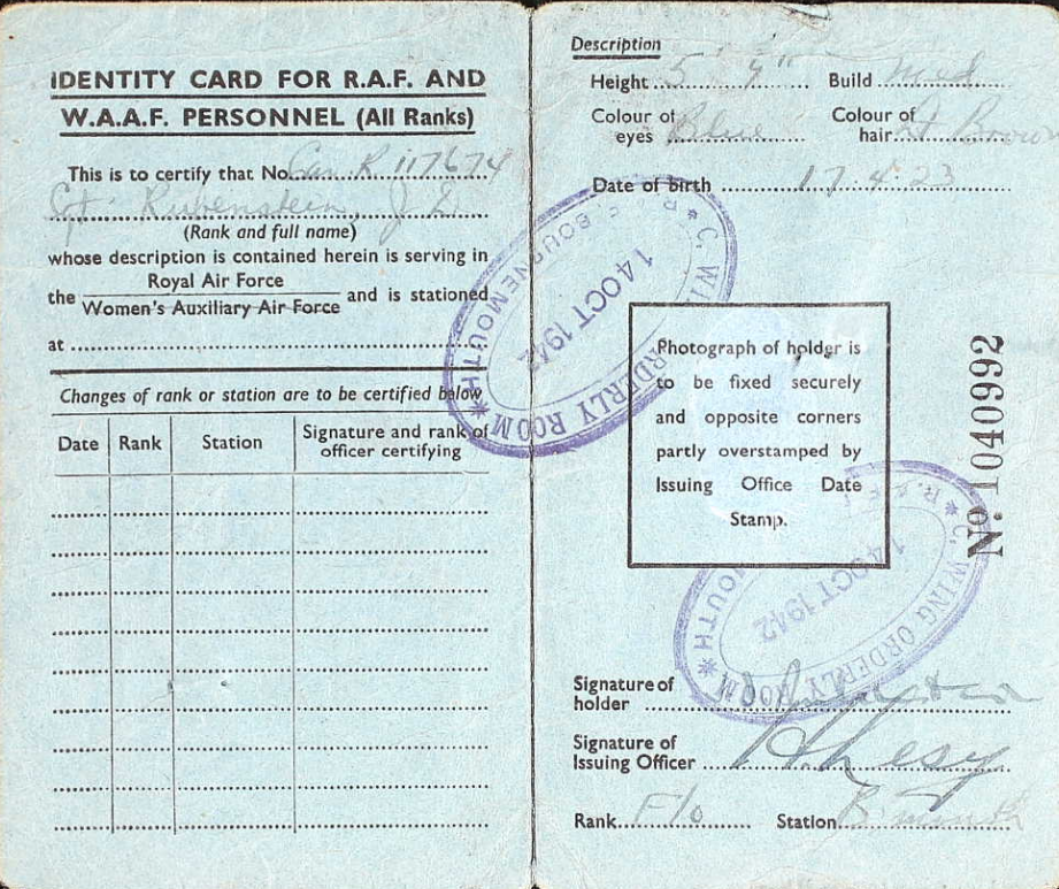 IDENTITY CARD FOR R.A.F. AND
W.A.A.F. PERSONNEL (All Ranks)
This is to certify that No. Can. R 117674
Sgt. Rubenstein, J D
(Rank and full name)
whose description is contained herein is serving in
the Royal Air Force
Women's Auxiliary Air Force and is stationed
at
Changes of rank or station are to be certified below
Date Rank Station Signature and rank of
officer certifying
Description
Height 5' 9" Build Med
Colour of
eyes Blue Colour of
hair Brown
Date of birth 17.4.23
C. WING ORDERLY ROOM * BOURNEMOUTH *
14 OCT 1942
Photograph of holder is
to be fixed securely
and opposite corners
partly overstamped by
Issuing Office Date
Stamp.
No. 1040992
C. WING ORDERLY ROOM * MOUTH *
14 OCT 1942
Signature of
holder
Signature of
Issuing Officer
Rank F/O Station B'mouth